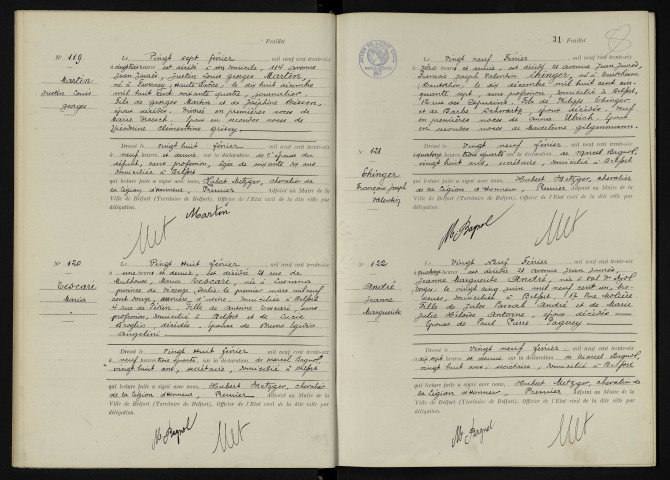 Feuillet
N° 119
Martin
Justin Louis
Georges
Le Vingt sept février mil neuf cent trente-six
à vingt trois heures est décédé en son domicile, 114 avenue
Jean Jaurès, Justin Louis Georges Martin,
né à (Haute Saône) le dix huit décembre
mil huit cent soixante quatre, journalier,
Fils de Georges Martin et de Joséphine Buisson,
époux décédés. Divorcé en premières noces de
Marie Époux en secondes noces de
Clémentine
Dressé le vingt huit février mil neuf cent trente-six
à neuf heures et demie, sur la déclaration de l'épouse du
défunt, sans profession, âgée de soixante ans
domiciliée à Belfort
qui lecture faite a signé avec nous, Hubert Metzger, chevalier
de la Légion d'honneur, Premier Adjoint au Maire de la
Ville de Belfort (Territoire de Belfort), Officier de l'Etat civil de la dite ville par
délégation.
Martin
Met
N° 120
Ecocaré
Maria
Le Vingt Huit février mil neuf cent trente-six
à une heure et demie, est décédée 21 rue de
Mulhouse, Maria Ecocaré, née à
province de Vicence, Italie le premier mars mil neuf
cent douze, ouvrière d'usine, domiciliée à Belfort
4 rue de Fille de Antoine Ecocaré, sans
profession, domicilié à Belfort et de Lucie
décédée. Epouse de Bruno
Angelini
Dressé le Vingt Huit février mil neuf cent trente-six
à neuf heures trois quarts, sur la déclaration de Marcel Bagnol,
vingt huit ans, secrétaire, domicilié à Belfort
qui lecture faite a signé avec nous, Hubert Metzger, chevalier
de la Légion d'honneur, Premier Adjoint au Maire de la
Ville de Belfort (Territoire de Belfort), Officier de l'Etat civil de la dite ville par
délégation.
M. Bagnol
Met
31 Feuillet
N° 121
Ehinger
François Joseph
Valentin
Le Vingt neuf Février mil neuf cent trente-six
à heures et demie, est décédé 21 avenue Jean Jaurès,
François Joseph Valentin Ehinger, né à
(Bas-Rhin), le dix décembre mil huit cent cin-
quante sept, sans profession, domicilié à Belfort,
12 rue des Capucins. Fils de Philippe Ehinger
et de Barbe Schwartz, époux décédés. Veuf
en premières noces de Anna Ulrich. Epoux
en secondes noces de Madeleine Gilgenmann.
Dressé le vingt neuf février mil neuf cent trente-six
à quatorze heures trois quarts sur la déclaration de Marcel Bagnol,
vingt huit ans, secrétaire, domicilié à Belfort
qui lecture faite a signé avec nous, Hubert Metzger, chevalier
de la Légion d'Honneur, Premier Adjoint au Maire de la
Ville de Belfort (Territoire de Belfort), Officier de l'Etat civil de la dite ville par
délégation.
M. Bagnol
Met
N° 122
André
Jeanne
Marguerite
Le Vingt Neuf Février mil neuf cent trente-six
à quatorze heures est décédée 21 avenue Jean Jaurès,
Jeanne Marguerite André, née à Val d'Ajol
Vosges, le vingt cinq juin mil neuf cent un,
domiciliée à Belfort, 17 rue Molière
Fille de Jules Pascal André et de Marie
Julie Héloïse Antoine, époux décédés
Epouse de Paul Pierre
Dressé le vingt neuf février mil neuf cent trente-six
à dix sept heures et demie sur la déclaration de Marcel Bagnol,
vingt huit ans, secrétaire, domicilié à Belfort
qui lecture faite a signé avec nous, Hubert Metzger, chevalier de
la Légion d'Honneur, Premier Adjoint au Maire de la
Ville de Belfort (Territoire de Belfort), Officier de l'Etat civil de la dite ville par
délégation.
M. Bagnol
Met